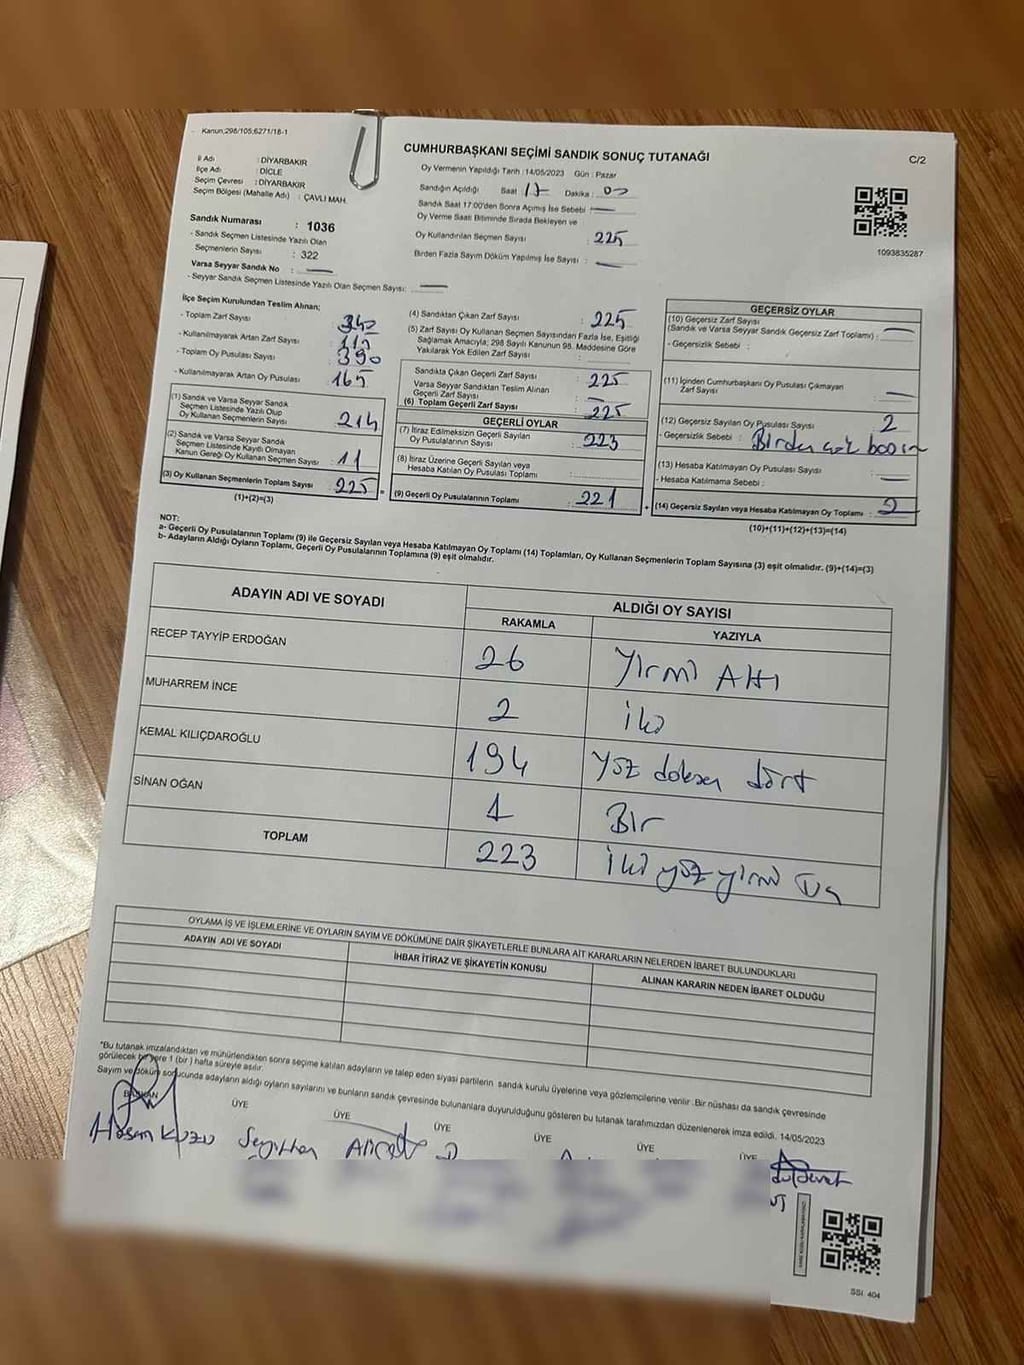 Kanun;298/105,6271/18-1
CUMHURBAŞKANI SEÇİMİ SANDIK SONUÇ TUTANAĞI
C/2
İl Adı : DİYARBAKIR
İlçe Adı : DİCLE
Seçim Çevresi : DİYARBAKIR
Seçim Bölgesi (Mahalle Adı) : ÇAVLI MAH.
Oy Vermenin Yapıldığı Tarih : 14/05/2023 Gün : Pazar
Sandığın Açıldığı Saat : 17 Dakika : 00
Sandık Saat 17:00'den Sonra Açılmış İse Sebebi :
Oy Verme Saati Bitiminde Sırada Bekleyen ve
Oy Kullandırılan Seçmen Sayısı : 225
Birden Fazla Sayım Döküm Yapılmış İse Sayısı :
1093835287
Sandık Numarası : 1036
- Sandık Seçmen Listesinde Yazılı Olan
Seçmenlerin Sayısı : 322
Varsa Seyyar Sandık No :
- Seyyar Sandık Seçmen Listesinde Yazılı Olan Seçmen Sayısı:
İlçe Seçim Kurulundan Teslim Alınan;
- Toplam Zarf Sayısı : 340
- Kullanılmayarak Artan Zarf Sayısı : 115
- Toplam Oy Pusulası Sayısı : 390
- Kullanılmayarak Artan Oy Pusulası : 165
(1) Sandık ve Varsa Seyyar Sandık
Seçmen Listesinde Yazılı Olup
Oy Kullanan Seçmenlerin Sayısı : 214
(2) Sandık ve Varsa Seyyar Sandık
Seçmen Listesinde Kayıtlı Olmayan
Kanun Gereği Oy Kullanan Seçmen Sayısı : 11
(3) Oy Kullanan Seçmenlerin Toplam Sayısı : 225
(1)+(2)=(3)
(4) Sandıktan Çıkan Zarf Sayısı : 225
(5) Zarf Sayısı Oy Kullanan Seçmen Sayısından Fazla İse, Eşitliği
Sağlamak Amacıyla; 298 Sayılı Kanunun 98. Maddesine Göre
Yakılarak Yok Edilen Zarf Sayısı :
Sandıkta Çıkan Geçerli Zarf Sayısı : 225
Varsa Seyyar Sandıktan Teslim Alınan
Geçerli Zarf Sayısı :
(6) Toplam Geçerli Zarf Sayısı : 225
GEÇERLİ OYLAR
(7) İtiraz Edilmeksizin Geçerli Sayılan
Oy Pusulalarının Sayısı : 223
(8) İtiraz Üzerine Geçerli Sayılan veya
Hesaba Katılan Oy Pusulası Toplamı :
(9) Geçerli Oy Pusulalarının Toplamı : 221
GEÇERSİZ OYLAR
(10) Geçersiz Zarf Sayısı
(Sandık ve Varsa Seyyar Sandık Geçersiz Zarf Toplamı) :
- Geçersizlik Sebebi :
(11) İçinden Cumhurbaşkanı Oy Pusulası Çıkmayan
Zarf Sayısı :
(12) Geçersiz Sayılan Oy Pusulası Sayısı : 2
- Geçersizlik Sebebi : Birden çok
(13) Hesaba Katılmayan Oy Pusulası Sayısı :
- Hesaba Katılmama Sebebi :
(14) Geçersiz Sayılan veya Hesaba Katılmayan Oy Toplamı : 2
(10)+(11)+(12)+(13)=(14)
NOT:
a- Geçerli Oy Pusulalarının Toplamı (9) ile Geçersiz Sayılan veya Hesaba Katılmayan Oy Toplamı (14) Toplamları, Oy Kullanan Seçmenlerin Toplam Sayısına (3) eşit olmalıdır. (9)+(14)=(3)
b- Adayların Aldığı Oyların Toplamı, Geçerli Oy Pusulalarının Toplamına (9) eşit olmalıdır.
ADAYIN ADI VE SOYADI
ALDIĞI OY SAYISI
RAKAMLA YAZIYLA
RECEP TAYYİP ERDOĞAN 26 Yirmi Altı
MUHARREM İNCE 2 iki
KEMAL KILIÇDAROĞLU 194 yüz doksan dört
SİNAN OĞAN 1 Bir
TOPLAM 223 iki yüz yirmi üç
OYLAMA İŞ VE İŞLEMLERİNE VE OYLARIN SAYIM VE DÖKÜMÜNE DAİR ŞİKAYETLERLE BUNLARA AİT KARARLARIN NELERDEN İBARET BULUNDUKLARI
ADAYIN ADI VE SOYADI
İHBAR İTİRAZ VE ŞİKAYETİN KONUSU
ALINAN KARARIN NEDEN İBARET OLDUĞU
*Bu tutanak imzalandıktan ve mühürlendikten sonra seçime katılan adayların ve talep eden siyasi partilerin sandık kurulu üyelerine veya gözlemcilerine verilir. Bir nüshası da sandık çevresinde
görülecek bir yere 1 (bir ) hafta süreyle asılır.
Sayım ve döküm sonucunda adayların aldığı oyların sayılarını ve bunların sandık çevresinde bulunanlara duyurulduğunu gösteren bu tutanak tarafımızdan düzenlenerek imza edildi. 14/05/2023
BAŞKAN ÜYE ÜYE ÜYE ÜYE ÜYE ÜYE
Hasan Kuzu
SSI: 404